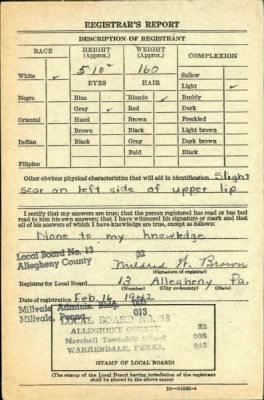 REGISTRAR'S REPORT
DESCRIPTION OF REGISTRANT
RACE HEIGHT (Approx.) WEIGHT (Approx.) COMPLEXION
5-10½ 160 Sallow
White ✓ EYES HAIR Light ✓
Negro Blue Blonde ✓ Ruddy
Gray ✓ Red Dark
Oriental Hazel Brown Freckled
Brown Black Light brown
Indian Black Gray Dark brown
Bald Black
Filipino
Other obvious physical characteristics that will aid in identification Slight
scar on left side of upper lip
I certify that my answers are true; that the person registered has read or has had
read to him his own answers; that I have witnessed his signature or mark and that
all of his answers of which I have knowledge are true, except as follows:
None to my knowledge
Local Board No. 13 92
Allegheny County Mildred Brown
(Signature of registrar)
Registrar for Local Board 13 Allegheny Pa.
(Number) (City or county) (State)
Date of registration Feb. 16 1942
Millvale Adminis. Bldg.
Millvale, Penna 013
LOCAL BOARD No. 13
ALLEGHENY COUNTY
Marshall Township 003
WARRENDALE, PENNA. 013
(STAMP OF LOCAL BOARD)
(The stamp of the Local Board having jurisdiction of the registrant shall
be placed in the above space)